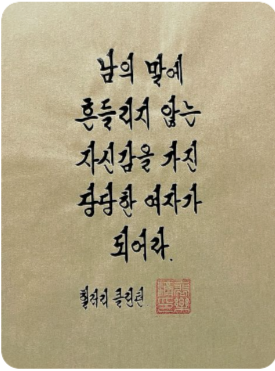 남의 말에
흔들리지 않는
자신감을 가진
당당한 여자가
되어라.
힐러리 클린턴